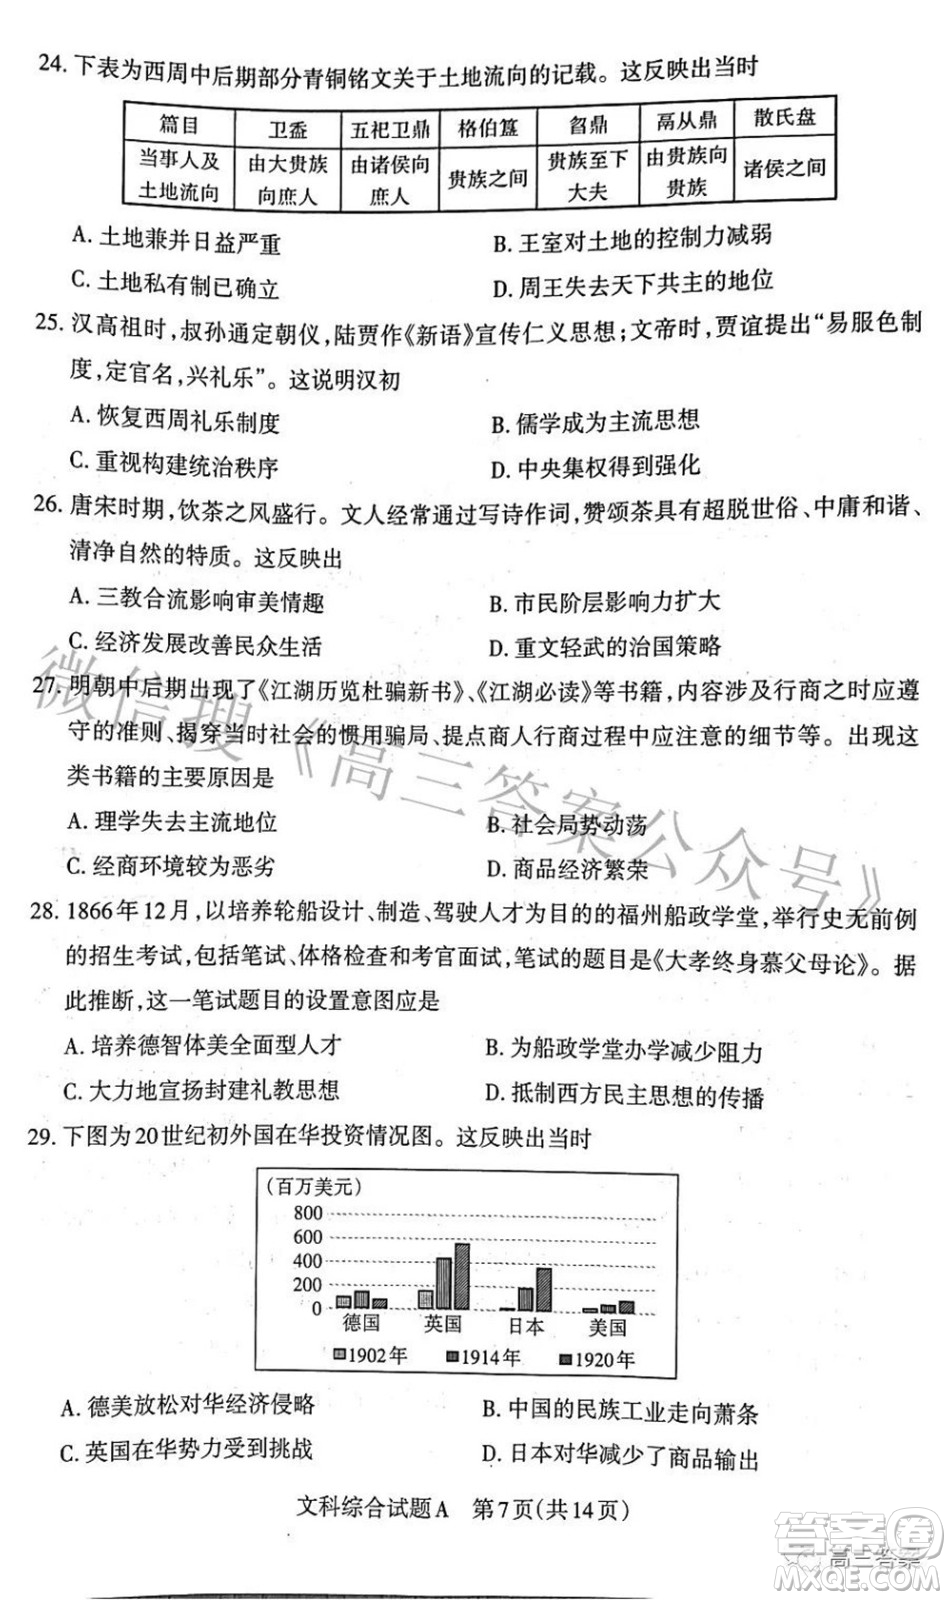 24. 下表为西周中后期部分青铜铭文关于土地流向的记载。这反映出当时
篇目 卫盉 五祀卫鼎 格伯簋 曶鼎 鬲从鼎 散氏盘
当事人及土地流向 由大贵族向庶人 由诸侯向庶人 贵族之间 贵族至下大夫 由贵族向贵族 诸侯之间
A. 土地兼并日益严重 B. 王室对土地的控制力减弱
C. 土地私有制已确立 D. 周王失去天下共主的地位
25. 汉高祖时,叔孙通定朝仪,陆贾作《新语》宣传仁义思想;文帝时,贾谊提出“易服色制
度,定官名,兴礼乐”。这说明汉初
A. 恢复西周礼乐制度 B. 儒学成为主流思想
C. 重视构建统治秩序 D. 中央集权得到强化
26. 唐宋时期,饮茶之风盛行。文人经常通过写诗作词,赞颂茶具有超脱世俗、中庸和谐、
清净自然的特质。这反映出
A. 三教合流影响审美情趣 B. 市民阶层影响力扩大
C. 经济发展改善民众生活 D. 重文轻武的治国策略
27. 明朝中后期出现了《江湖历览杜骗新书》、《江湖必读》等书籍,内容涉及行商之时应遵
守的准则、揭穿当时社会的惯用骗局、提点商人行商过程中应注意的细节等。出现这
类书籍的主要原因是
A. 理学失去主流地位 B. 社会局势动荡
C. 经商环境较为恶劣 D. 商品经济繁荣
28. 1866年12月,以培养轮船设计、制造、驾驶人才为目的的福州船政学堂,举行史无前例
的招生考试,包括笔试、体格检查和考官面试,笔试的题目是《大孝终身慕父母论》。据
此推断,这一笔试题目的设置意图应是
A. 培养德智体美全面型人才 B. 为船政学堂办学减少阻力
C. 大力地宣扬封建礼教思想 D. 抵制西方民主思想的传播
29. 下图为20世纪初外国在华投资情况图。这反映出当时
(百万美元)
800
600
400
200
0
德国 英国 日本 美国
1902年 1914年 1920年
A. 德美放松对华经济侵略 B. 中国的民族工业走向萧条
C. 英国在华势力受到挑战 D. 日本对华减少了商品输出
文科综合试题A 第7页(共14页)
微信搜《高三答案公众号》
答案圈
高三答案
MXQE.COM